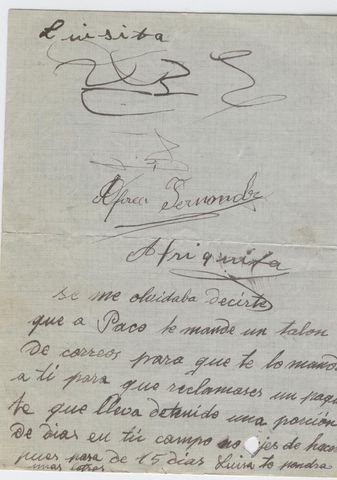 Luisita
Alfrea Fernandez
Afriquita
se me olvidaba decirte
que a Paco te mande un talon
de correos para que te lo mande
a ti para que reclamases un paque
te que lleva detenido una porción
de dias en tú campo no jes de hacer
pues pasa de 15 dias Luisa te pondra
unas letras